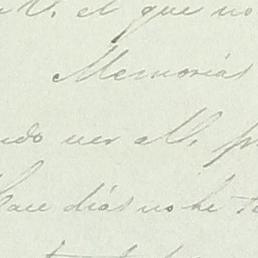 V. el que no
Memorias
ndo ver a V. p
Hace dias no he t